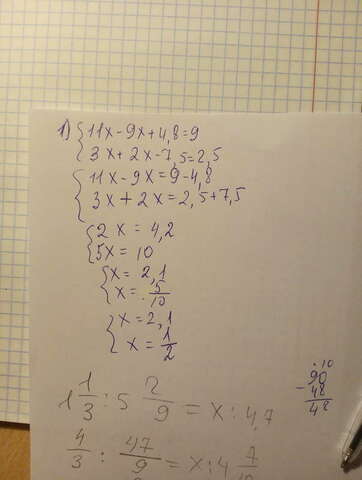 1) { 11x-9x+4,8=9
3x+2x-7,5=2,5
{ 11x-9x=9-4,8
3x+2x=2,5+7,5
{ 2x=4,2
5x=10
{ x=2,1
x=5/10
{ x=2,1
x=1/2
1 1/3 : 5 2/9 = x : 4,7
4/3 : 47/9 = x : 4 7/10
10
90
- 48
42